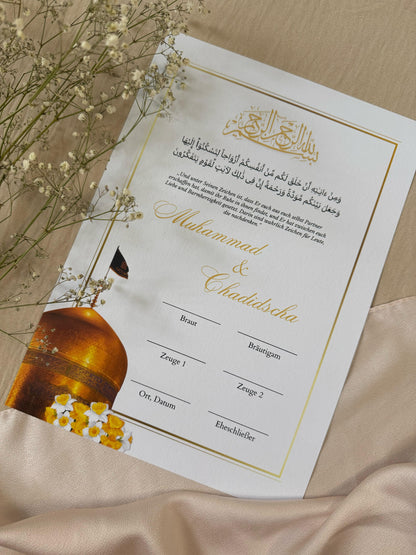 بسم الله الرحمن الرحيم
وَمِنْ ءَايَٰتِهِۦٓ أَنْ خَلَقَ لَكُم مِّنْ أَنفُسِكُمْ أَزْوَٰجًا لِّتَسْكُنُوٓا۟ إِلَيْهَا
وَجَعَلَ بَيْنَكُم مَّوَدَّةً وَرَحْمَةً إِنَّ فِى ذَٰلِكَ لَءَايَٰتٍ لِّقَوْمٍ يَتَفَكَّرُونَ
„Und unter Seinen Zeichen ist, dass Er euch aus euch selbst Partner
erschaffen hat, damit ihr Ruhe in ihnen findet, und Er hat zwischen euch
Liebe und Barmherzigkeit gesetzt. Darin sind wahrlich Zeichen für Leute,
die nachdenken."
Muhammad
&
Chadidscha
Braut
Bräutigam
Zeuge 1
Zeuge 2
Ort, Datum
Eheschließer